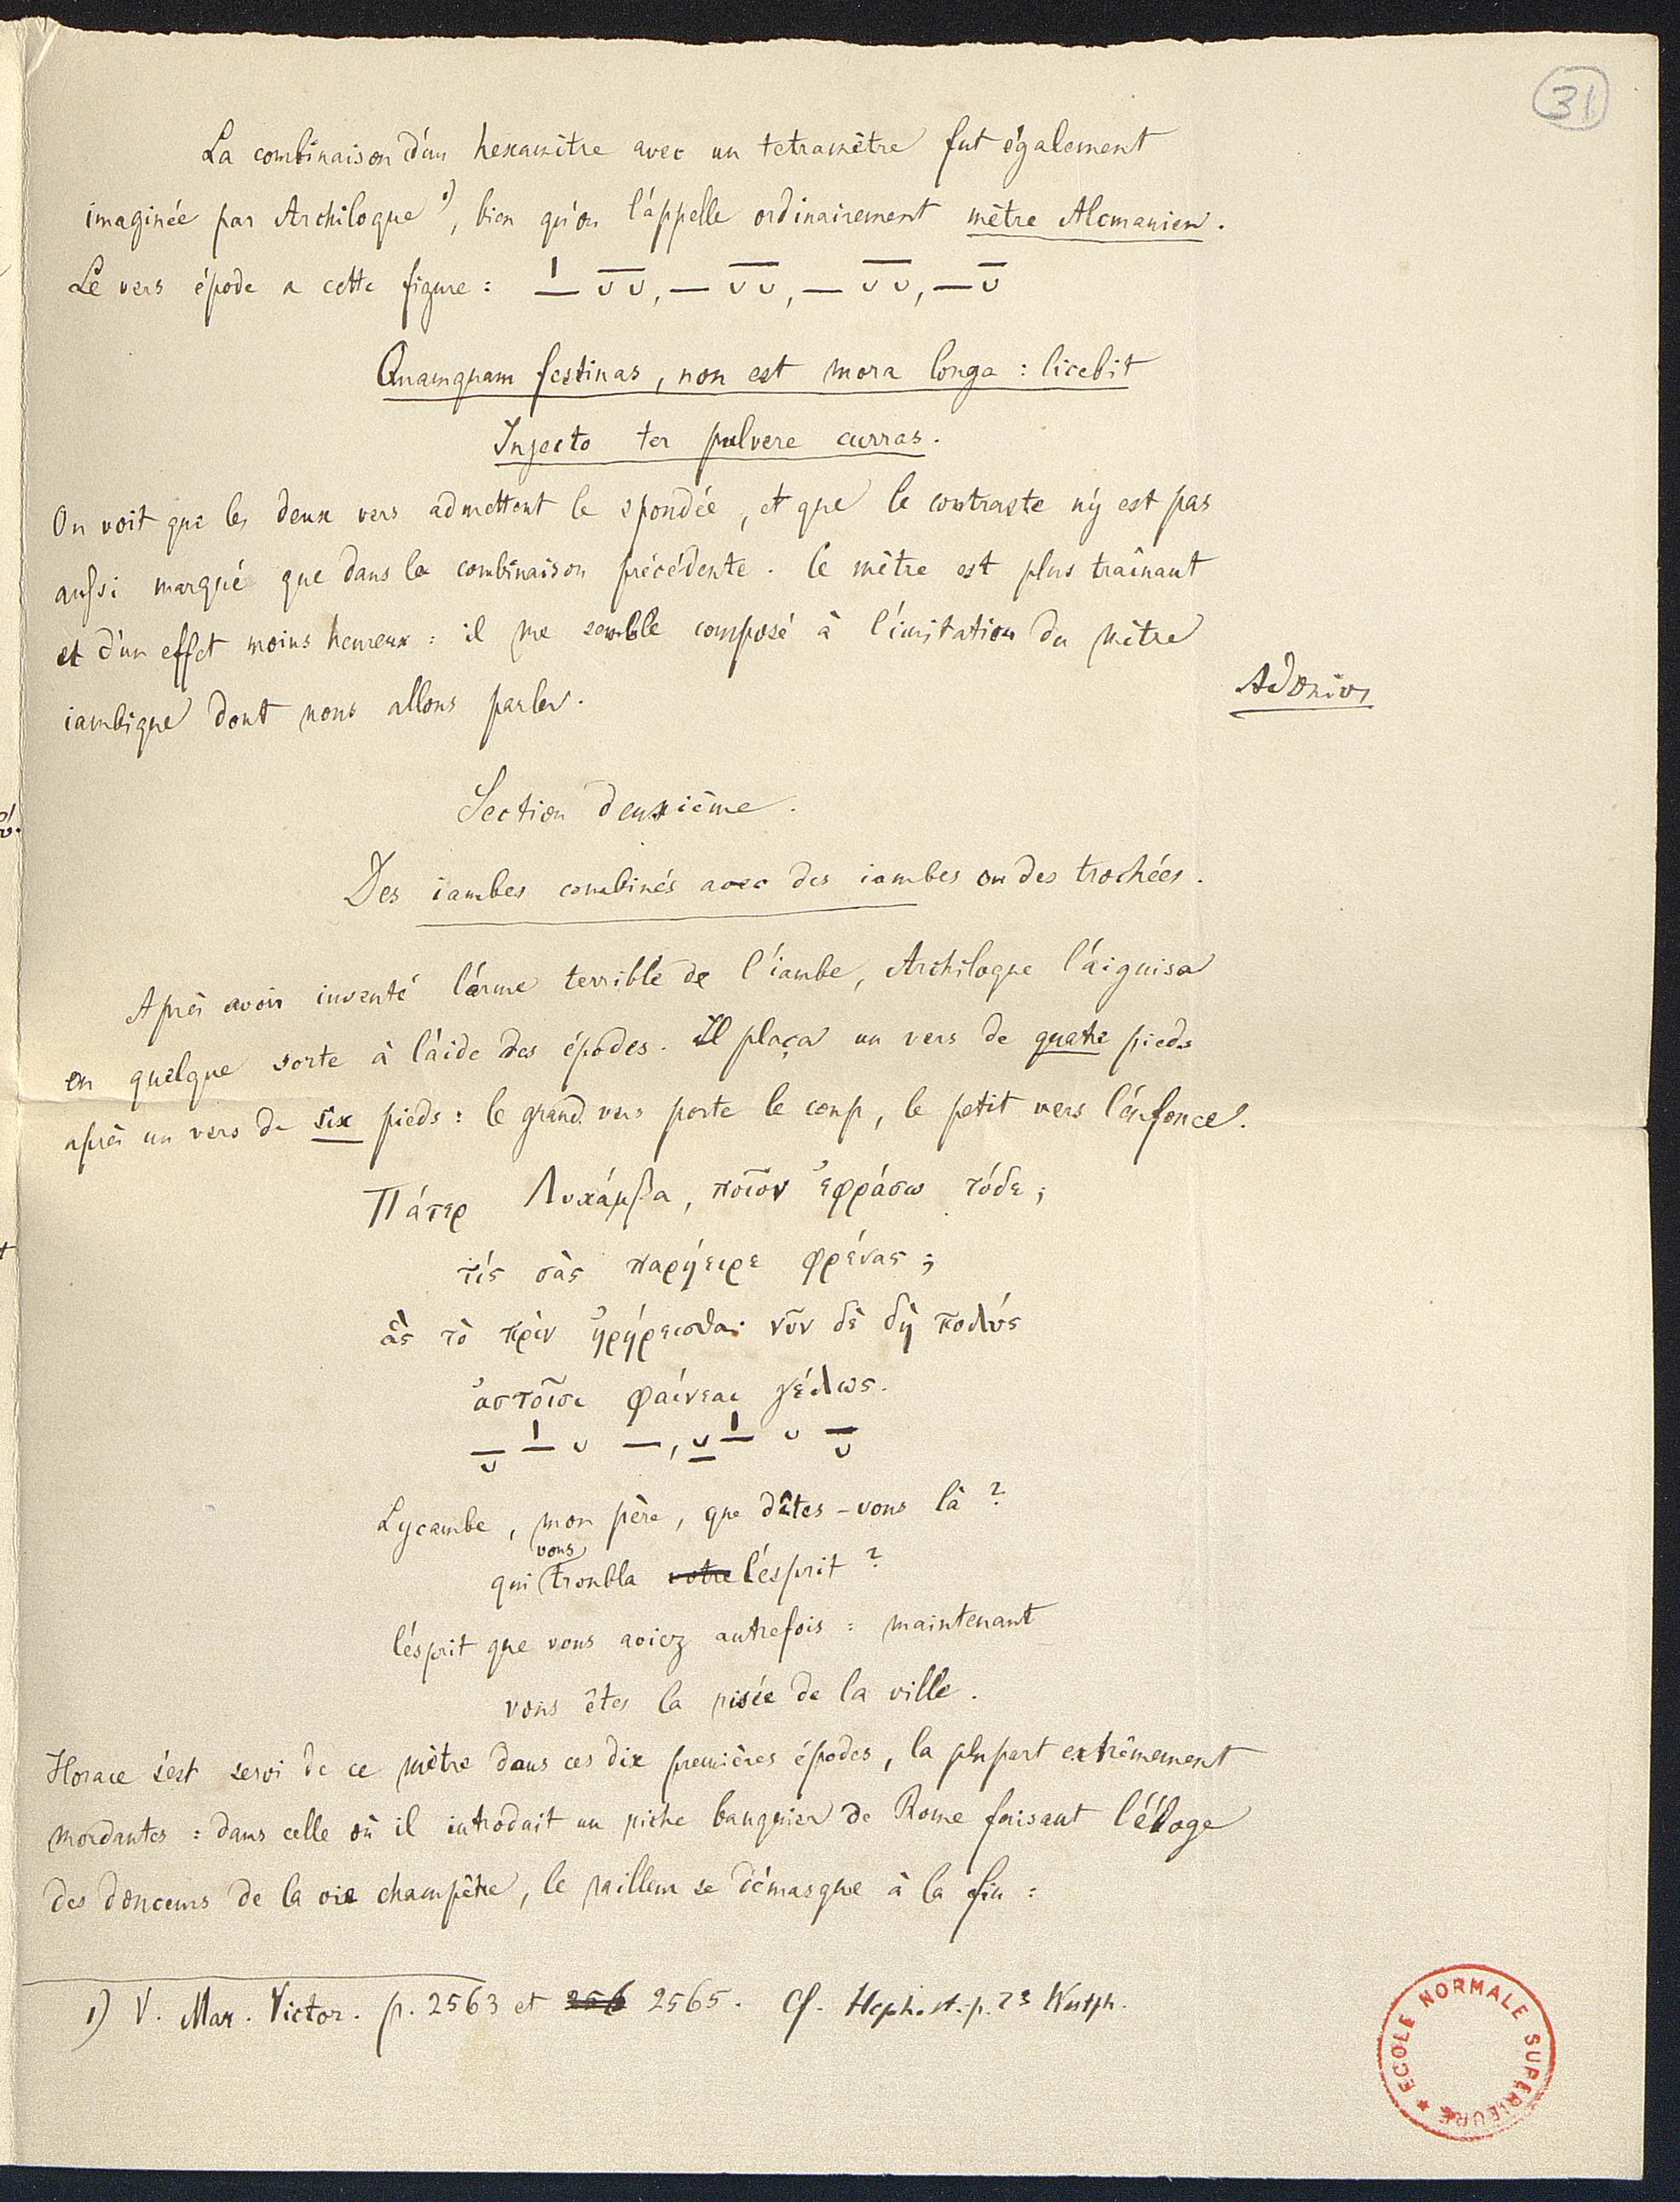 31
La combinaison d'un hexamètre avec un tetramètre fut également
imaginée par Archiloque 1), bien qu'on l'appelle ordinairement mètre Alcmanien.
Le vers épode a cette figure : – ⏑⏑, – ⏑⏑, – ⏑⏑, – ⏑
Quamquam festinas, non est mora longa : licebit
Injecto ter pulvere curras.
On voit que les deux vers admettent le spondée, et que le contraste n'y est pas
aussi marqué que dans la combinaison précédente. Ce mètre est plus traînant
et d'un effet moins heureux : il me semble composé à l'imitation du mètre
iambique dont nous allons parler.
Adonius
Section deuxième.
Des iambes combinés avec des iambes ou des trochées.
Après avoir inventé l'arme terrible de l'iambe, Archiloque l'aiguisa
en quelque sorte à l'aide des épodes. Il plaça un vers de quatre pieds
après un vers de six pieds : le grand vers porte le coup, le petit vers l'enfonce.
Πάτερ Λυκάμβα, ποῖον ἐφράσω τόδε ;
τίς σὰς παρήειρε φρένας ;
ἃς τὸ πρὶν ἠρήρεισθα· νῦν δὲ δὴ πολύς
ἀστοῖσι φαίνεαι γέλως.
⏓ – ⏑ –, ⏓ – ⏑ ⏓
Lycambe, mon père, que dîtes-vous là ?
vous
qui troubla votre l'esprit ?
l'esprit que vous aviez autrefois : maintenant
vous êtes la risée de la ville.
Horace s'est servi de ce mètre dans ces dix premières épodes, la plupart extrêmement
mordantes : dans celle où il introduit un riche banquier de Rome faisant l'éloge
des douceurs de la vie champêtre, le railleur se démasque à la fin :
1) V. Mar. Victor. p. 2563 et 256 2565. Cf. Hephæst. p. 23 Westph.
ECOLE NORMALE SUPERIEURE